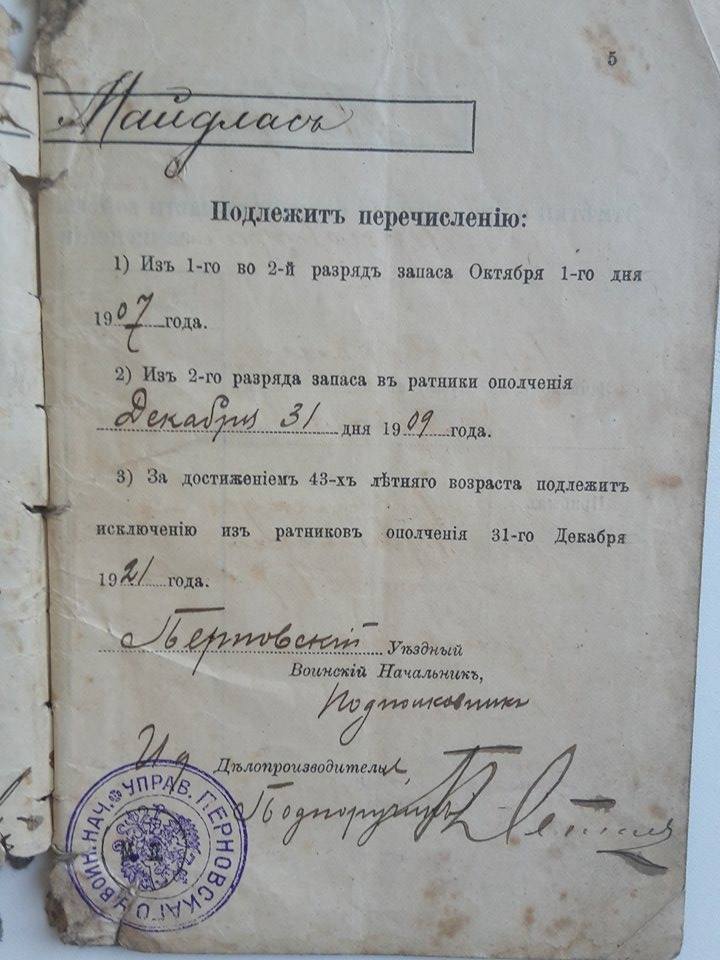 5
Майдласъ
Подлежитъ перечисленію:
1) Изъ 1-го во 2-й разрядъ запаса Октября 1-го дня
1907 года.
2) Изъ 2-го разряда запаса въ ратники ополченія
Декабря 31 дня 1909 года.
3) За достиженіемъ 43-хъ лѣтняго возраста подлежитъ
исключенію изъ ратниковъ ополченія 31-го Декабря
1921 года.
Перновскій Уѣздный
Воинскій Начальникъ,
Подполковникъ
И д Дѣлопроизводителя,
Подпоручикъ
УПРАВ. ПЕРНОВСКАГО У. ВОИН. НАЧ.